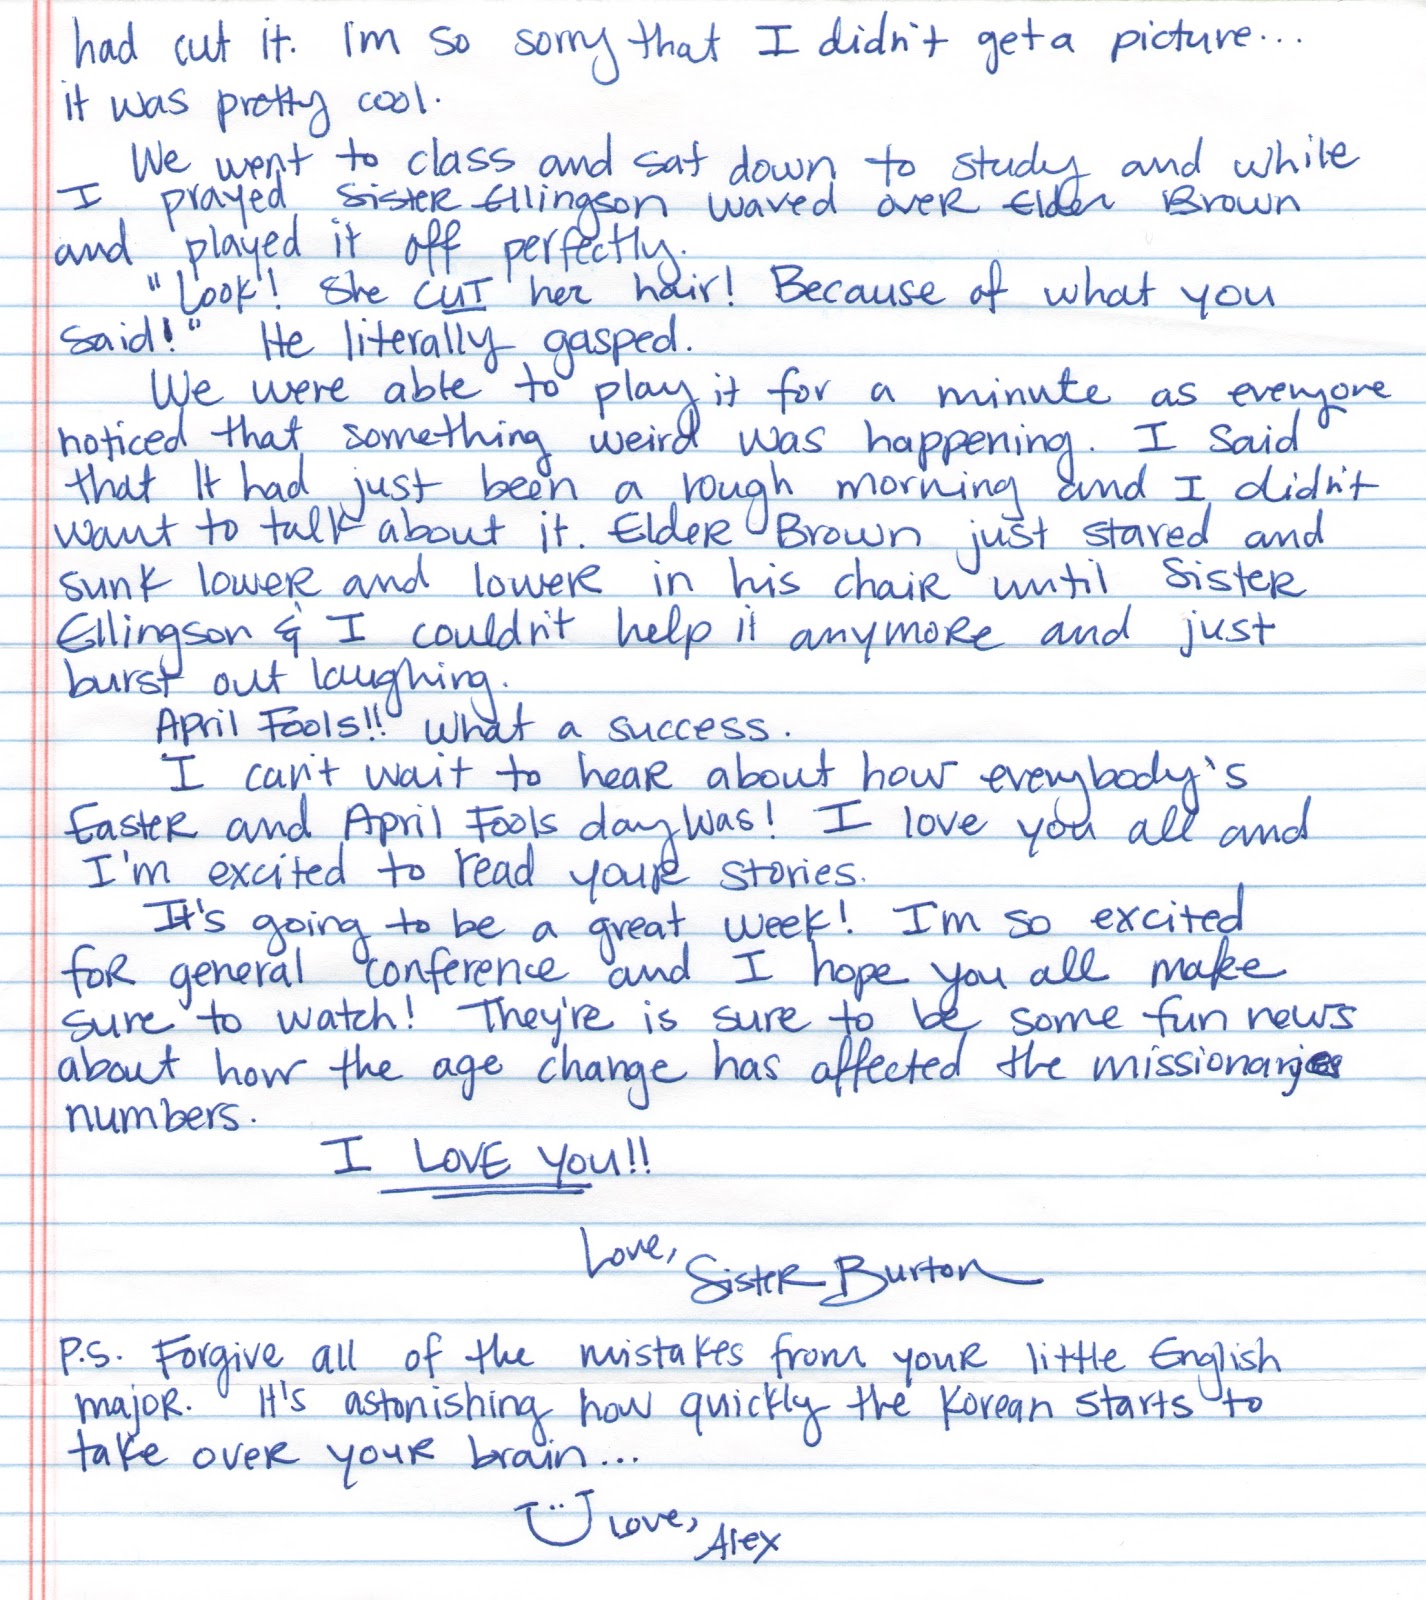 had cut it. I'm so sorry that I didn't get a picture...
it was pretty cool.
We went to class and sat down to study and while
I prayed Sister Ellingson waved over Elder Brown
and played it off perfectly.
"Look! She CUT her hair! Because of what you
said!" He literally gasped.
We were able to play it for a minute as everyone
noticed that something weird was happening. I said
that It had just been a rough morning and I didn't
want to talk about it. Elder Brown just stared and
sunk lower and lower in his chair until Sister
Ellingson & I couldn't help it anymore and just
burst out laughing.
April Fools!! What a success.
I can't wait to hear about how everybody's
Easter and April Fools day was! I love you all and
I'm excited to read your stories.
It's going to be a great week! I'm so excited
for general conference and I hope you all make
sure to watch! They're is sure to be some fun news
about how the age change has affected the missionaries
numbers.
I LOVE YOU!!
Love,
Sister Burton
P.S. Forgive all of the mistakes from your little English
major. It's astonishing how quickly the Korean starts to
take over your brain...
Love,
Alex